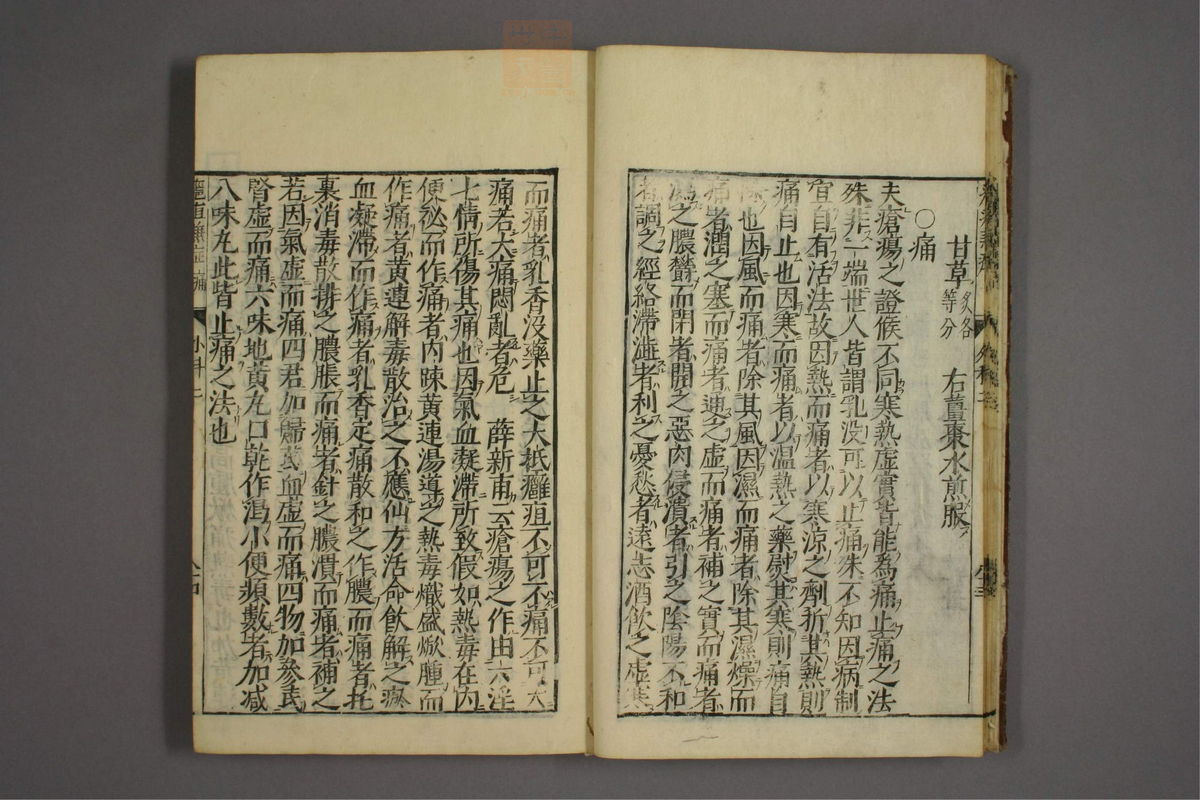 甘草炙各等分 右薑棗水煎服
○痛
夫瘡瘍之證候不同寒熱虛實皆能為痛止痛之法
殊非一端世人皆謂乳沒可以止痛殊不知因病制
宜自有活法故因熱而痛者以寒涼之劑折其熱則
痛自止也因寒而痛者以溫熱之藥熨其寒則痛自
除也因風而痛者除其風因濕而痛者除其濕燥而
痛者潤之塞而痛者通之虛而痛者補之實而痛者
瀉之膿鬱而閉者開之惡肉侵潰者引之陰陽不和
者調之經絡滯澁者利之憂愁者遠志酒飲之虛寒
而痛者乳香沒藥止之大抵癰疽不可不痛不可大
痛若大痛悶亂者危 薛新甫云瘡瘍之作由六淫
七情所傷其痛也因氣血凝滯所致假如熱毒在內
便祕而作痛者內踈黃連湯導之熱毒熾盛焮腫而
作痛者黃連解毒散治之不應仙方活命飲解之瘀
血凝滯而作痛者乳香定痛散和之作膿而痛者托
裏消毒散排之膿脹而痛者針之膿潰而痛者補之
若因氣虛而痛四君加歸芪血虛而痛四物加參芪
腎虛而痛六味地黃丸口乾作渴小便頻數者加減
八味丸此皆止痛之法也